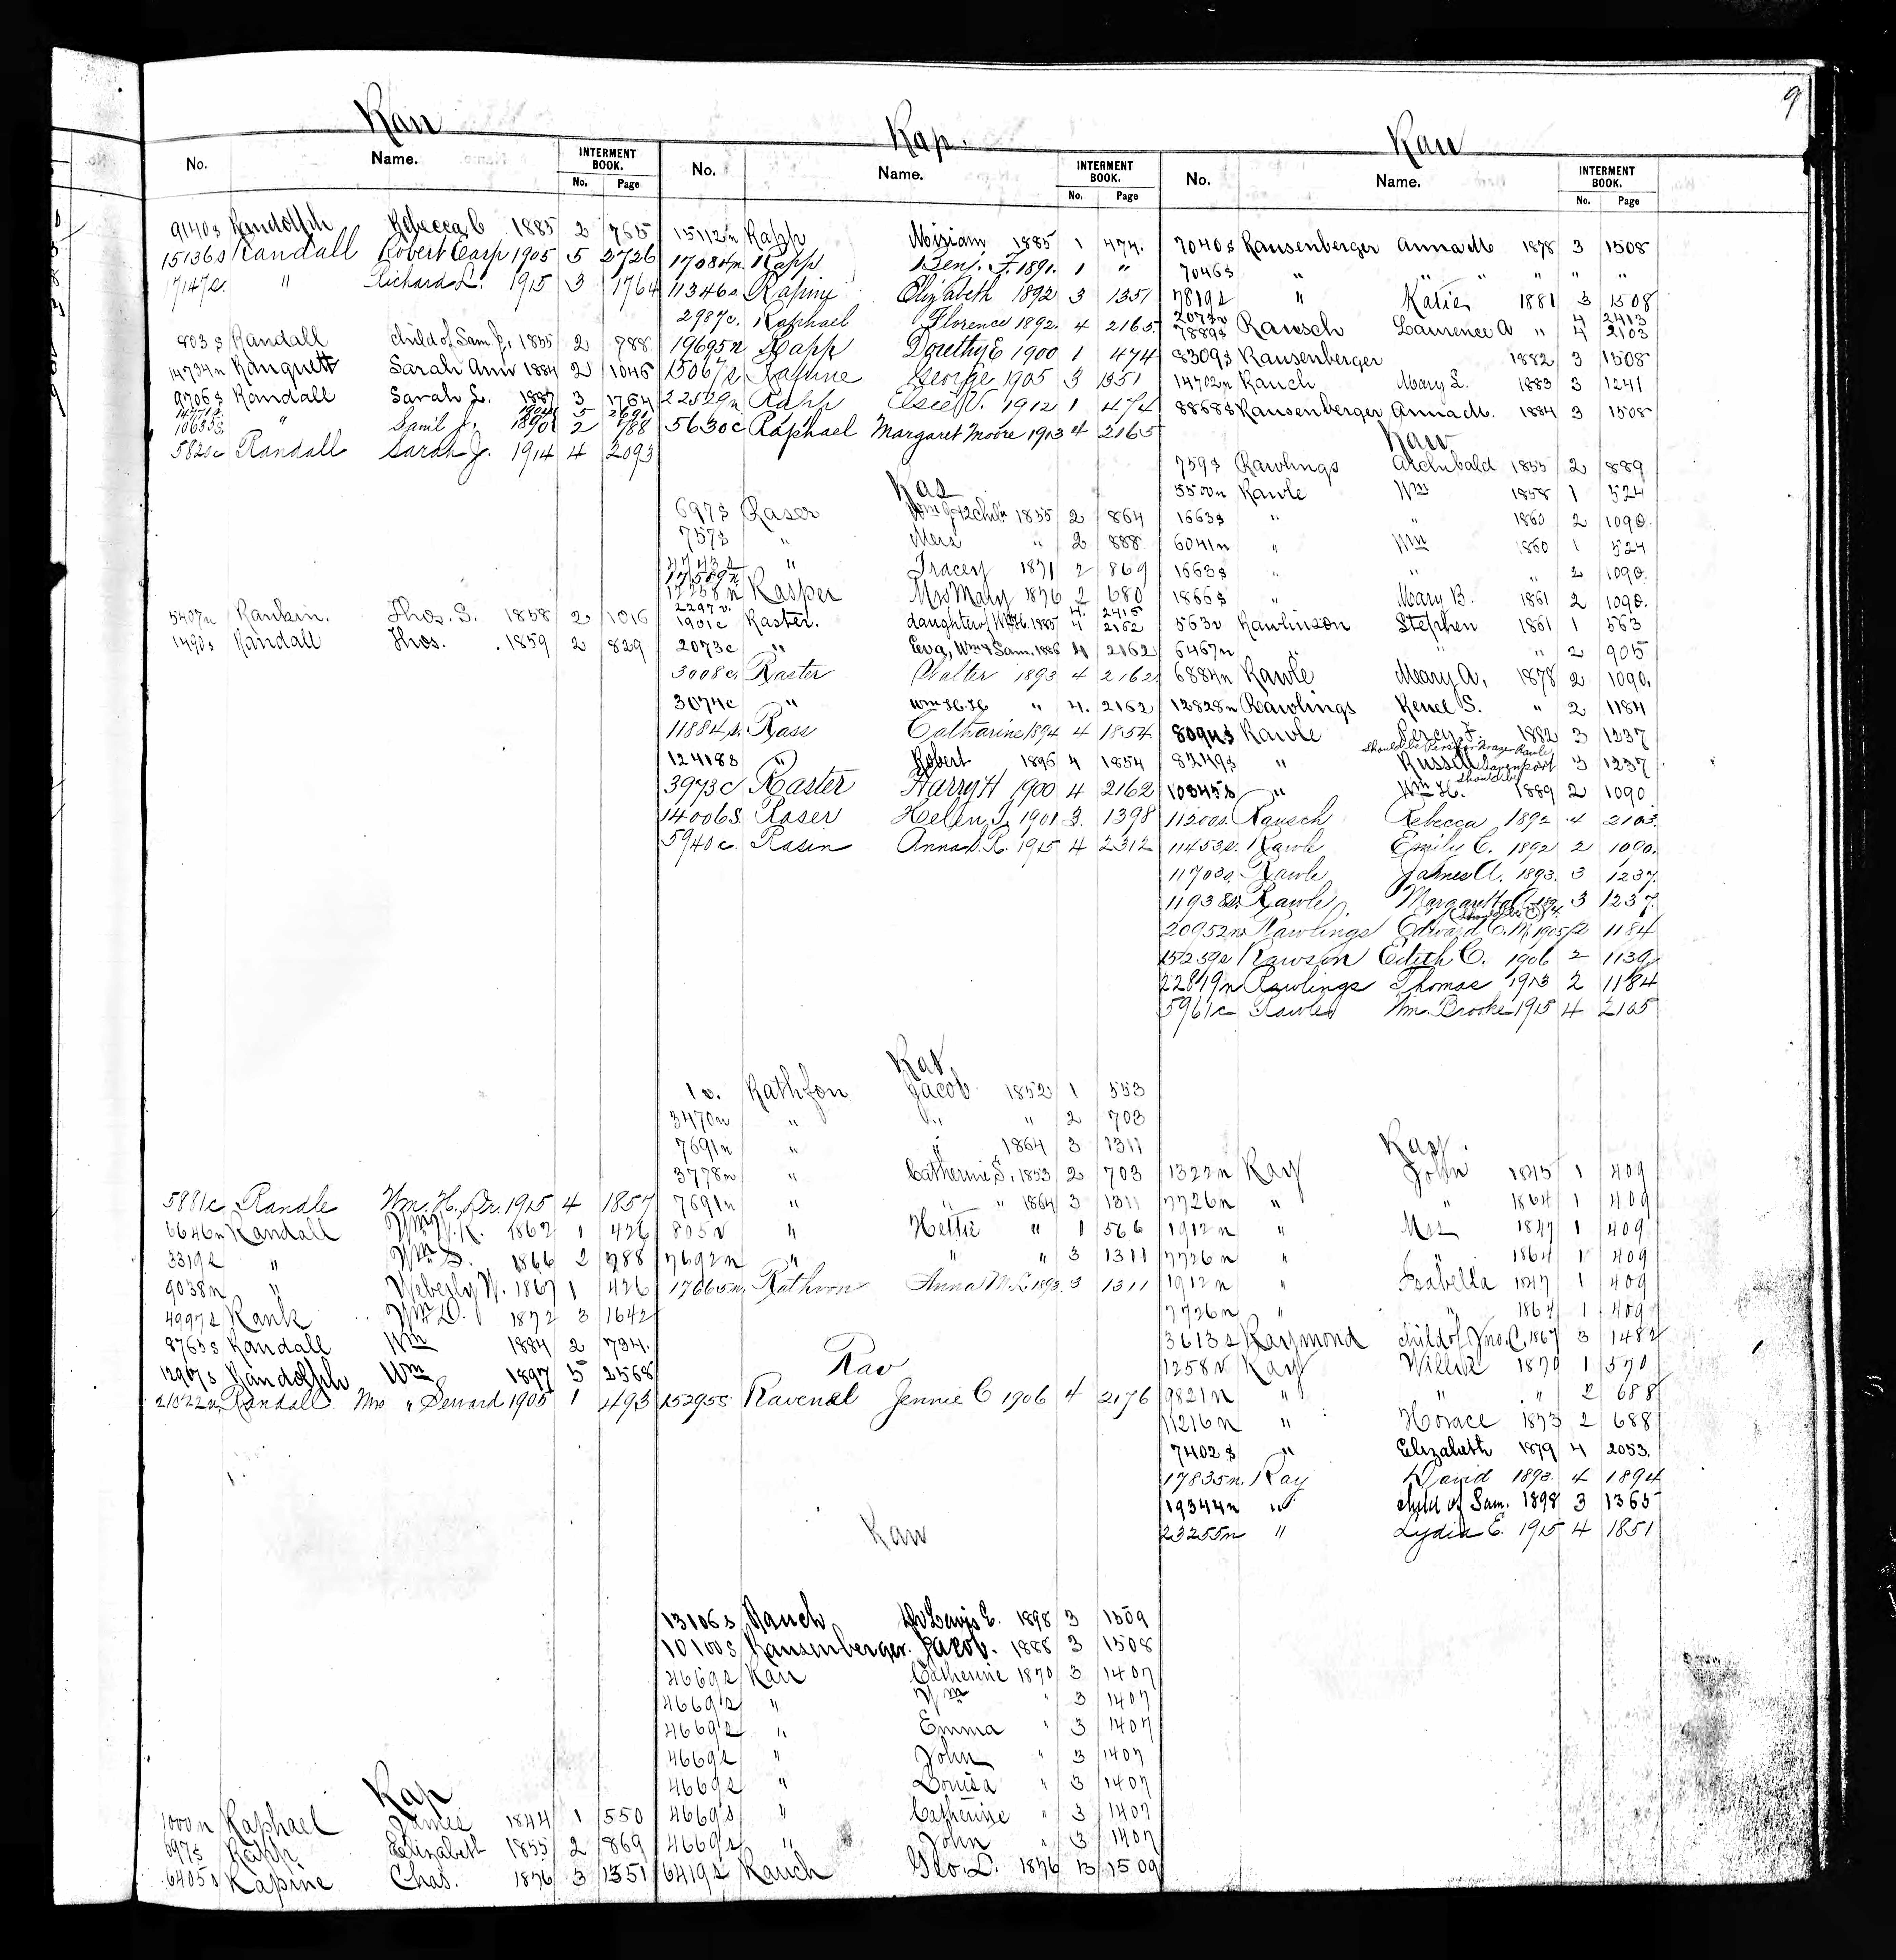 9
Ran
No. Name. INTERMENT BOOK.
No. Page
9140s Randolph Rebecca C 1885 2 765
15136s Randall Robert Earp 1905 5 2726
17147c. " Richard L. 1915 3 1764
803s Randall child of Sam J. 1855 2 788
14734n Ranquett Sarah Ann 1884 2 1046
9706s Randall Sarah L. 1887 3 1764
" Saml J. 1890 2 788
5820c Randall Sarah J. 1914 4 2093
5407n Rankin. Thos. S. 1858 2 1016
1490s Randall Thos. 1859 2 829
5881c Randle Wm. H. Dr. 1915 4 1857
6646n Randall Wm W. R. 1862 1 426
3319s " Wm S. 1866 2 788
9038n " Weberly W. 1867 1 426
4997s Rank Wm D. 1872 3 1642
8763s Randall Wm 1884 2 734.
12907s Randolph Wm 1897 5 2568
21022n Randall Mrs " Seward 1905 1 493
Rap
1000n Raphael James 1844 1 550
697s Rapp Elizabeth 1855 2 869
6405s Rapine Chas. 1876 3 1351
Rap.
No. Name. INTERMENT BOOK.
No. Page
15112n Rapp Miriam 1885 1 474.
17084n. Rapp Benj. F. 1891. 1 "
11346s Rapine Elizabeth 1892 3 1351
2987c. Raphael Florence 1892. 4 2165
19695n Rapp Dorethy E 1900 1 474
15067s Rapine George 1905 3 1351
22529n Rapp Elsie V. 1912 1 474
5630c Raphael Margaret Moore 1913 4 2165
Ras
697s Raser 1855 2 864
757s " " 2 888
4743s " Tracey 1871 2 869
12258n Rasper Mrs Mary 1876 2 680
2297v. 4. 2415
1901c Raster. daughter of Wm H. 1885 4 2162
2073c " Eva, Wm & Sam. 1886 4 2162
3008c. Raster Walter 1893 4 2162
3074c " Wm H. H. " 4. 2162
11884s. Rass Catharine 1894 4 1854
12418s " Robert 1896 4 1854
3973c Raster Harry H 1900 4 2162
14006s. Raser Helen I. 1901 3. 1398
5940c. Rasin Anna D. R. 1915 4 2312
Rat
1v. Rathfon Jacob 1852 1 553
3470n " " " 2 703
7691n " " 1864 3 1311
3778n " Catherine S. 1853 2 703
7691n " " " 1864 3 1311
805v " Hettie " 1 566
7692n " " " 3 1311
17665n. Rathvon Anna M. L. 1893. 3 1311
Rav
15295s Ravenel Jennie C 1906 4 2176
Raw
13106s Rauch Dr Lewis E. 1898 3 1509
10100s Rausenberger. Jacob. 1888 3 1508
4669s Rau Catherine 1870 3 1407
4669s " Wm " 3 1407
4669s " Emma " 3 1407
4669s " John " 3 1407
4669s " Louisa " 3 1407
4669s " Catherine " 3 1407
4669s " John " 3 1407
6419s Rauch Geo. L. 1876 3 1509
Rau
No. Name. INTERMENT BOOK.
No. Page
7040s Rausenberger Anna M 1878 3 1508
7046s " " " " " "
7819s " Katie 1881 3 1508
2073v 4 2413
7889s Rausch Laurence A " 4 2103
8309s Rausenberger 1882 3 1508
14702n Rauch Mary L. 1883 3 1241
8868s Rausenberger Anna M. 1884 3 1508
Raw
759s Rawlings Archibald 1855 2 889
5500n Rawle Wm 1858 1 524
1663s " " 1860 2 1090.
6041n " Wm 1860 1 524
1663s " " " 2 1090.
1866s " Mary B. 1861 2 1090.
563v Rawlinson Stephen 1861 1 563
6467n " " " 2 905
6884n Rawle Mary A. 1878 2 1090.
12828n Rawlings Renel S. " 2 1184
8094s Rawle Percy F. 1882 3 1237
8249s " Russell Davenport 3 1237
should be
10345s " Wm H. 1889 2 1090
11200s. Rausch Rebecca 1892 4 2103.
11453s. Rawle Emily C. 1892 2 1090.
11703s. Rawle James A. 1893. 3 1237.
11938s. Rawle 3 1237.
20952n Rawlings Edward C. M. 1905 2 1184
15259s Rawson Edith C. 1906 2 1139
22819n Rawlings Thomas 1913 2 1184
5961c Rawle Wm. Brooke 1915 4 2165
Ray.
1322n Ray John 1845 1 409
7726n " " 1864 1 409
1912n " Mrs 1847 1 409
7726n " " 1864 1 409
1912n " Isabella 1847 1 409
7726n " " 1864 1 409
3613s Raymond child of Jno. C. 1867 3 1482
1258v Ray Willie 1870 1 570
9821n " " " 2 688
11216n " Horace 1873 2 688
7402s " Elizabeth 1879 4 2053.
17835n. Ray David 1893. 4 1894
19344n " child of Sam. 1898 3 1365
23255n " Lydia E. 1915 4 1851